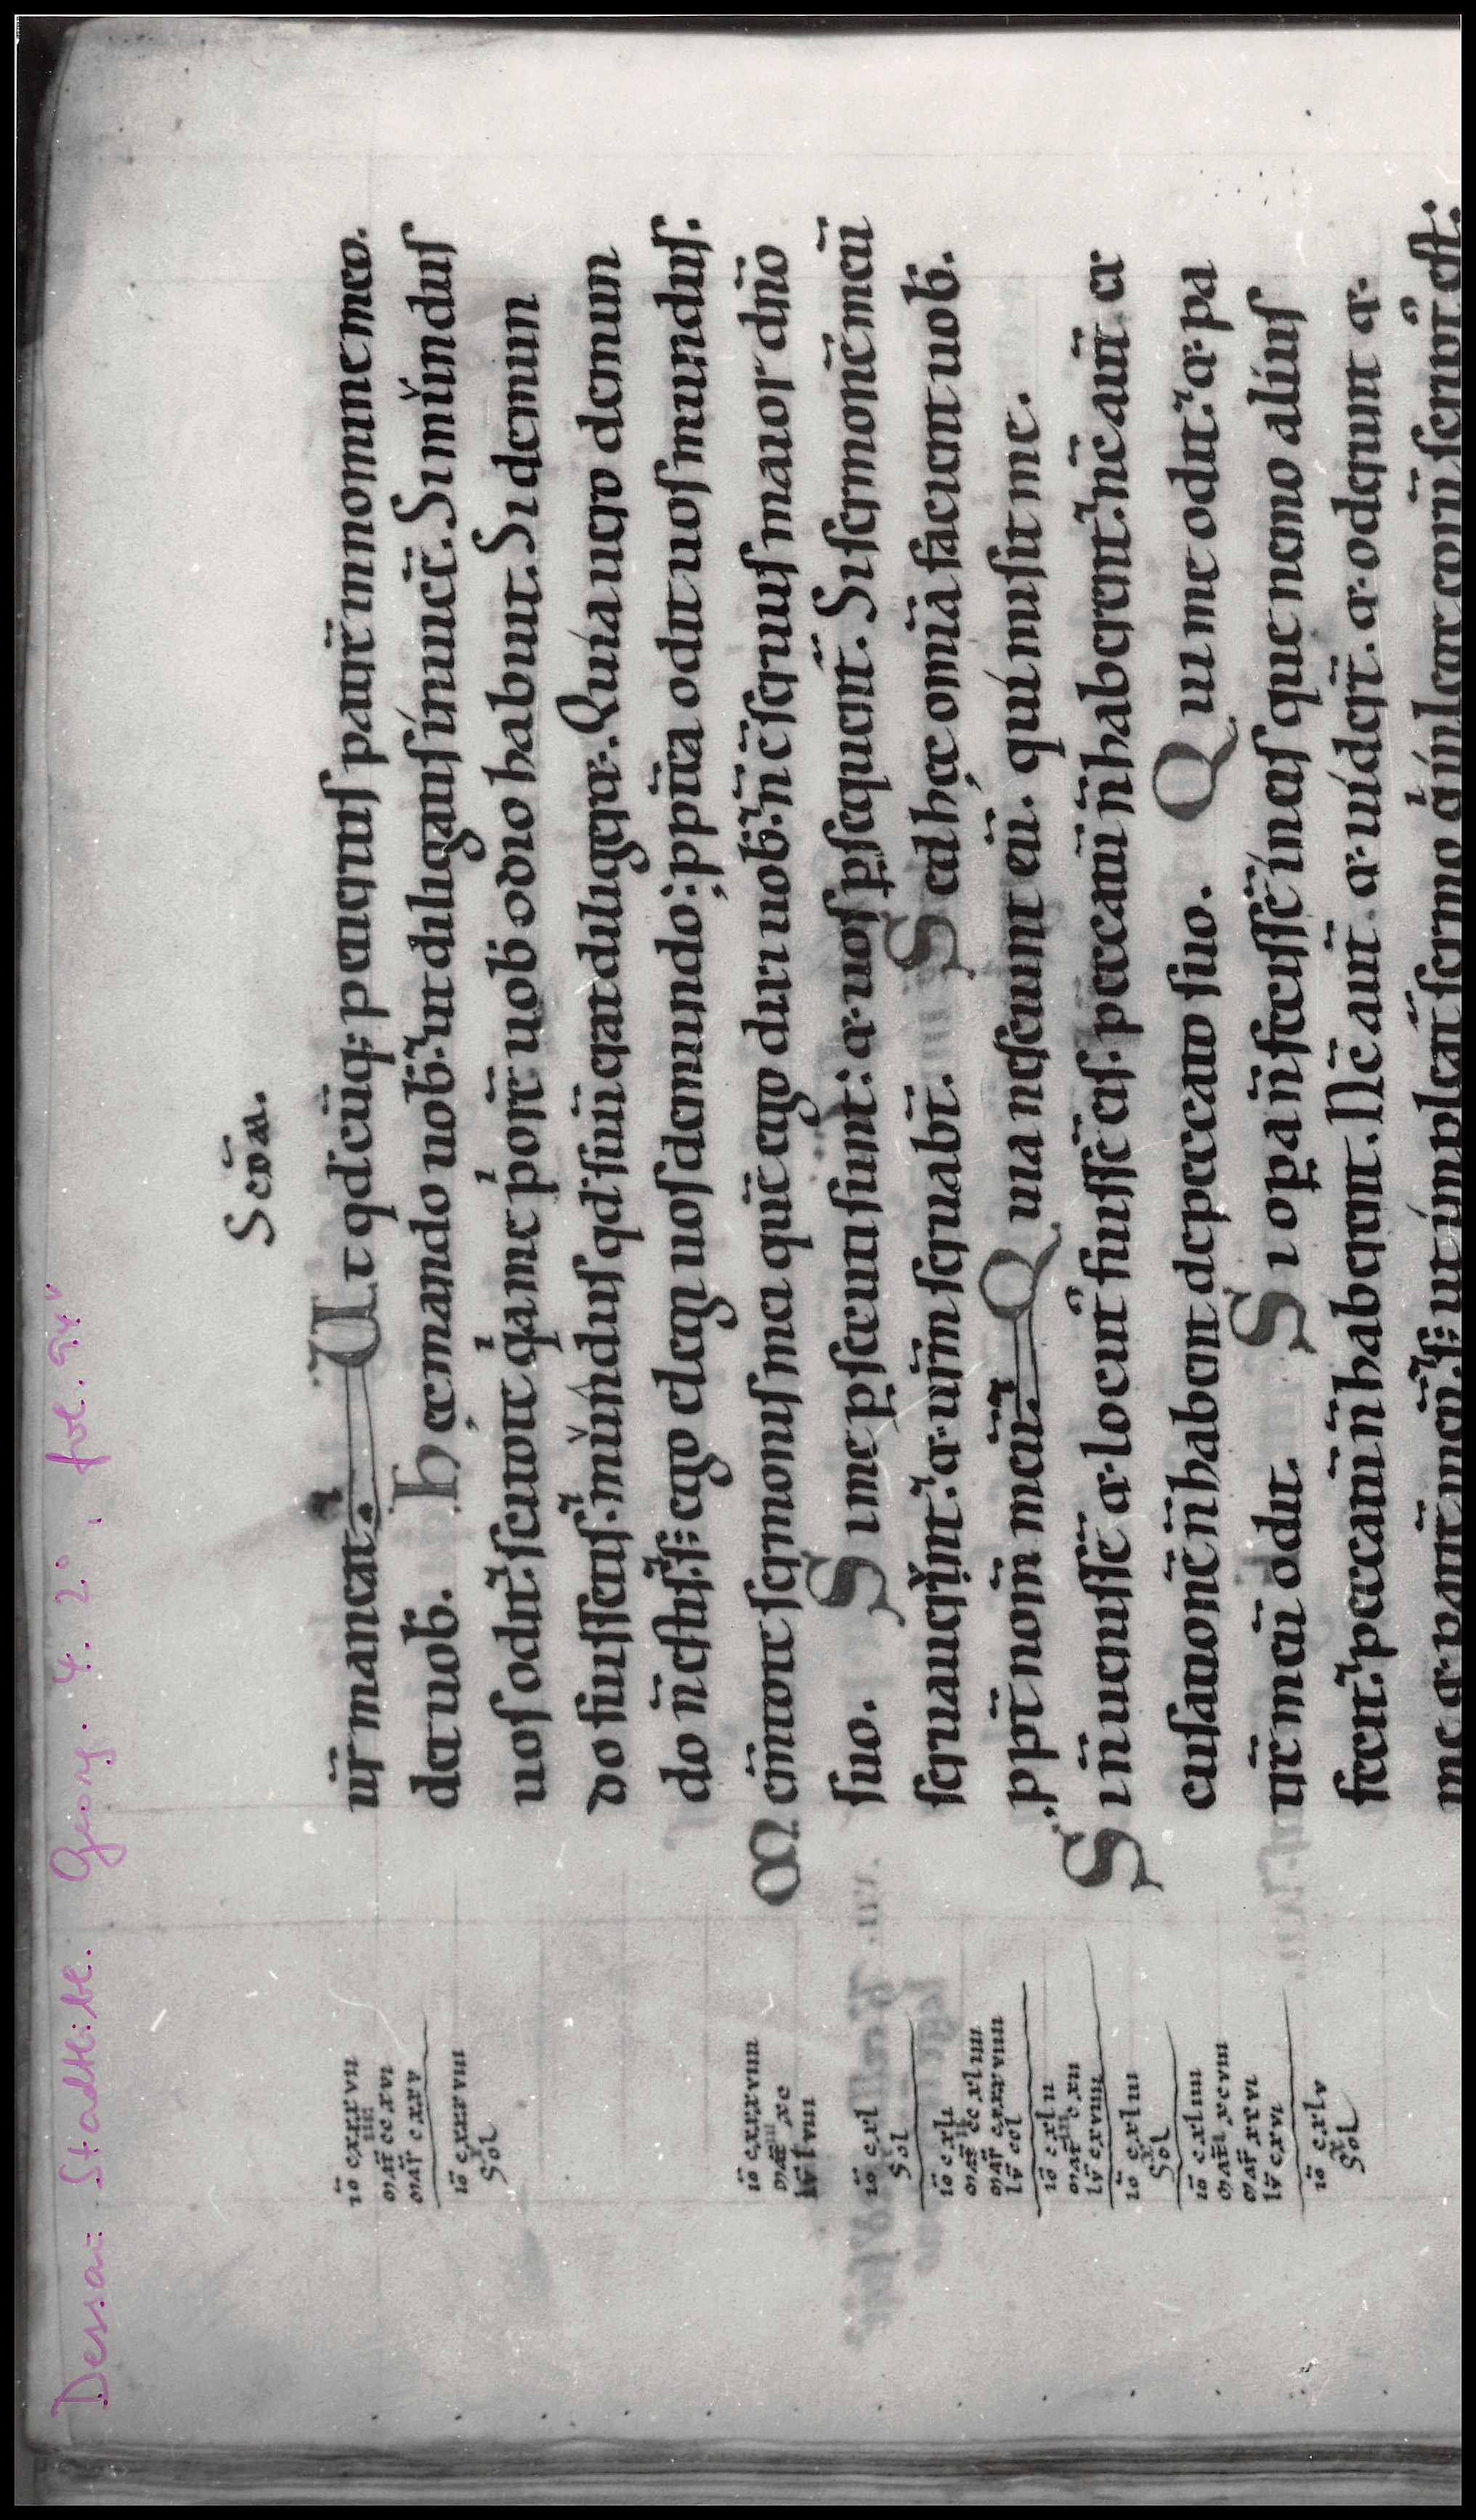 Dessau Stadtbibl. Georg. 4. 2°. fol. 94v
Scdm.
ur̄ maneat. Ut qd̄cūq; petieritis patrē in nomine meo.
det uob̄. Hęc mando uob̄. ut diligatis inuicē. Si mundus
uos odit. scitote qia me priorē uob̄ odio habuit. Si de mun
do fuissetis. mundus qd̄ suū erat diligeret. Quia uero de mun
do n̄ estis. s; ego elegi uos de mundo; ppt̄ea odit uos mundus.
Mem̄tote sermonis mei quē ego dixi uob̄. n̄ ē seruus maior dn̄o
suo. Si me psecuti sunt: & uos psequent̄. Si sermonē meū
seruauerint. & ur̄m seruabt̄. Sed hęc omīa facient uob̄.
ppt̄ nom̄ meū. Quia nesciunt eū. qui misit me.
Si n̄ uenissē & locut' fuissē eis. peccatū n̄ haberent. nc̄ aut̄ ex
cusationē n̄ habent de peccato suo. Qui me odit. & pa
trē meū odit. Si opa n̄ fecissē in eis que nemo alius
fecit. peccatū n̄ haberent. Nc̄ aut̄ & uider̄t. & oderunt &
me & patrē meū. s; ut impleat̄ sermo qi in lege eorū script' est:
io cxxxvii
mat ccxvi
mar cxxv
io cxxxviii
sol
io cxxxviiii
mat xc
lv lviii
io cxl
sol
io cxli
mat ccxliiii
mar cxxxviiii
lv ccl
io cxlii
mat cxii
lv cxviiii
io cxliii
sol
io cxliiii
mat xcviii
mar xcvi
lv cxvi
io cxlv
sol